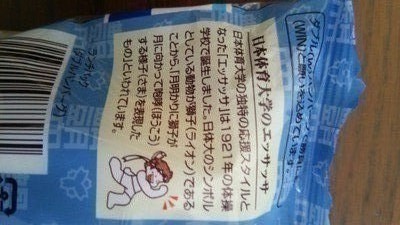 日本体育大学のエッサッサ
日本体育大学の独特の応援スタイルと
なった「エッサッサ」は1921年の体操
学校で誕生しました。日体大のシンボル
としている動物が獅子(ライオン)である
ことから、「月明かりに獅子が
月に向かって咆哮(ほうこう)
する様子(さま)を表現した
もの」といわれています。